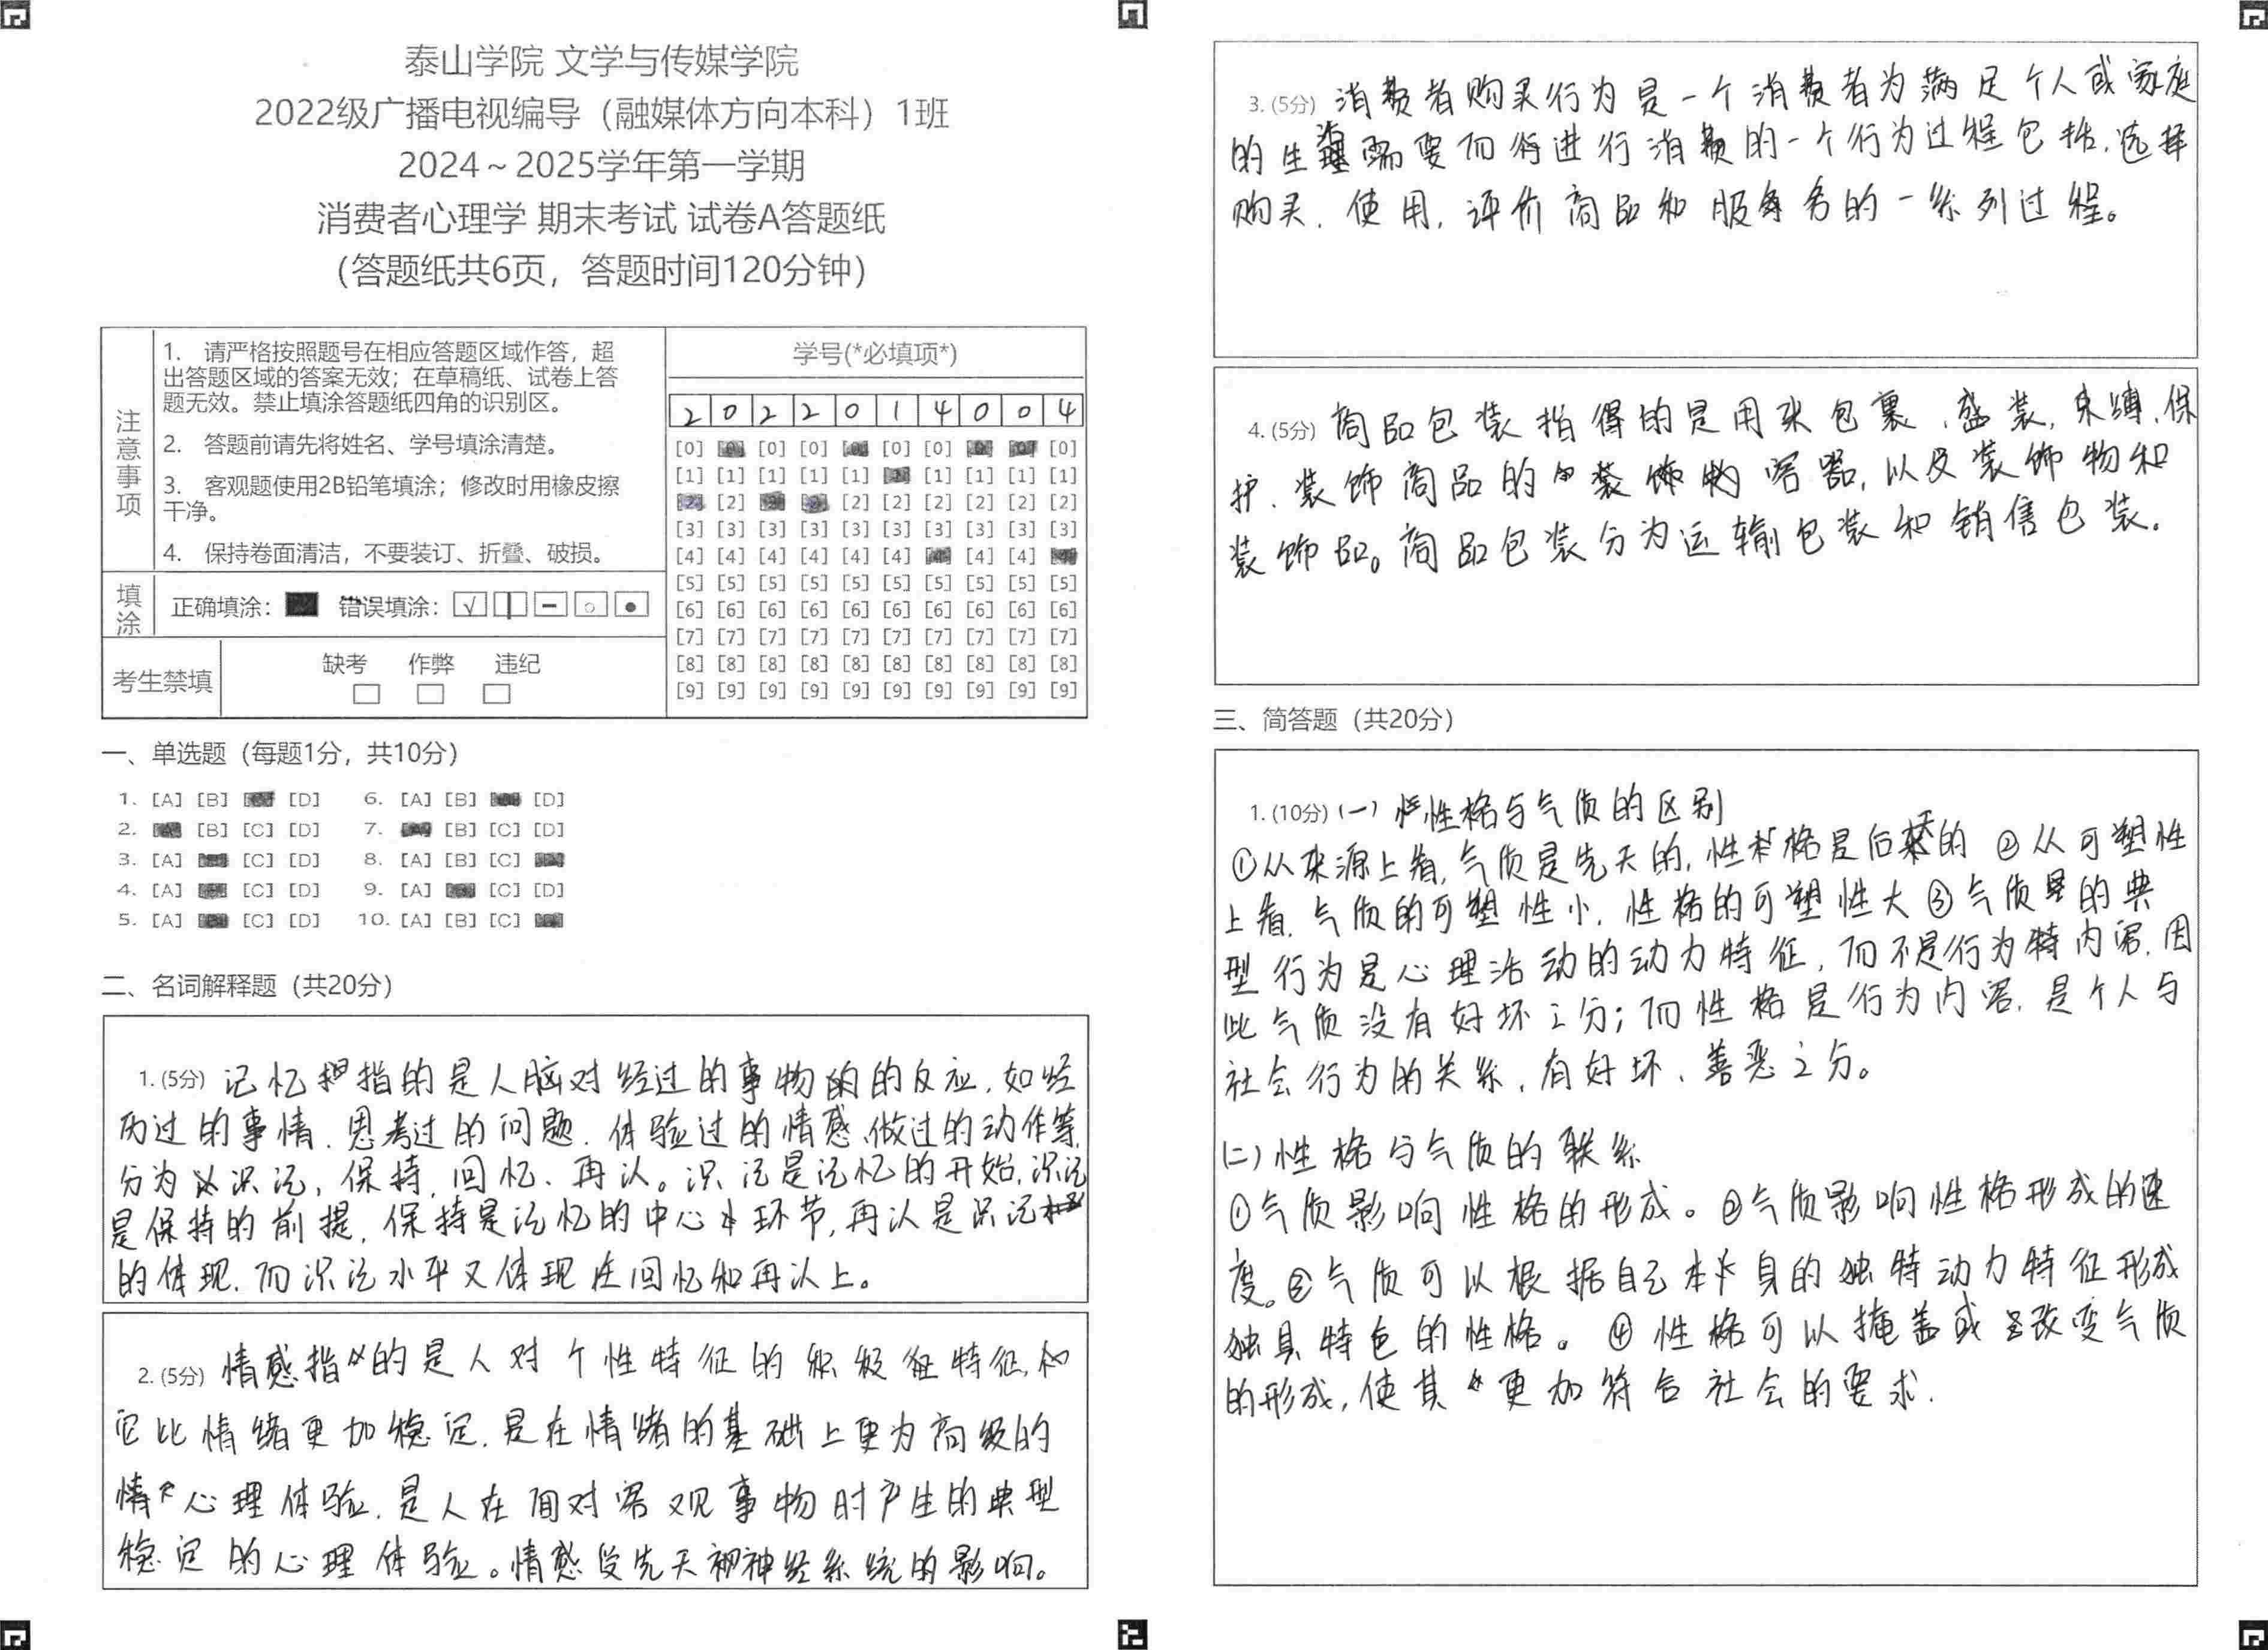 泰山学院 文学与传媒学院
2022级广播电视编导（融媒体方向本科）1班
2024～2025学年第一学期
消费者心理学 期末考试 试卷A答题纸
（答题纸共6页，答题时间120分钟）
注意事项
1. 请严格按照题号在相应答题区域作答，超
出答题区域的答案无效；在草稿纸、试卷上答
题无效。禁止填涂答题纸四角的识别区。
2. 答题前请先将姓名、学号填涂清楚。
3. 客观题使用2B铅笔填涂；修改时用橡皮擦
干净。
4. 保持卷面清洁，不要装订、折叠、破损。
填涂 正确填涂： 错误填涂：
考生禁填 缺考 作弊 违纪
学号(*必填项*)
2 0 2 2 0 1 4 0 0 4
[0] [0] [0] [0] [0] [0] [0] [0] [0] [0]
[1] [1] [1] [1] [1] [1] [1] [1] [1] [1]
[2] [2] [2] [2] [2] [2] [2] [2] [2] [2]
[3] [3] [3] [3] [3] [3] [3] [3] [3] [3]
[4] [4] [4] [4] [4] [4] [4] [4] [4] [4]
[5] [5] [5] [5] [5] [5] [5] [5] [5] [5]
[6] [6] [6] [6] [6] [6] [6] [6] [6] [6]
[7] [7] [7] [7] [7] [7] [7] [7] [7] [7]
[8] [8] [8] [8] [8] [8] [8] [8] [8] [8]
[9] [9] [9] [9] [9] [9] [9] [9] [9] [9]
一、单选题（每题1分，共10分）
1. [A] [B] [C] [D] 6. [A] [B] [C] [D]
2. [A] [B] [C] [D] 7. [A] [B] [C] [D]
3. [A] [B] [C] [D] 8. [A] [B] [C] [D]
4. [A] [B] [C] [D] 9. [A] [B] [C] [D]
5. [A] [B] [C] [D] 10. [A] [B] [C] [D]
二、名词解释题（共20分）
1. (5分) 记忆指的是人脑对经过的事物的反应，如经
历过的事情、思考过的问题、体验过的情感、做过的动作等，
分为识记、保持、回忆、再认。识记是记忆的开始，识记
是保持的前提，保持是记忆的中心环节，再认是识记
的体现，而识记水平又体现在回忆和再认上。
2. (5分) 情感指的是人对个性特征的积极特征，和
它比情绪更加稳定，是在情绪的基础上更为高级的
心理体验，是人在面对客观事物时产生的典型
稳定的心理体验。情感受先天神经系统的影响。
3. (5分) 消费者购买行为是一个消费者为满足个人或家庭
的生活需要而将进行消费的一个行为过程包括，选择
购买，使用，评价商品和服务的一系列过程。
4. (5分) 商品包装指得的是用来包裹、盛装，束缚，保
护、装饰商品的容器，以及装饰物和
装饰品。商品包装分为运输包装和销售包装。
三、简答题（共20分）
1. (10分) (一) 性格与气质的区别
①从来源上看，气质是先天的，性格是后天的 ②从可塑性
上看，气质的可塑性小，性格的可塑性大 ③气质的典
型行为是心理活动的动力特征，而不是行为内容，因
此气质没有好坏之分；而性格是行为内容，是个人与
社会行为的关系，有好坏、善恶之分。
(二) 性格与气质的联系
①气质影响性格的形成。②气质影响性格形成的速
度。③气质可以根据自己本身的独特动力特征形成
独具特色的性格。④性格可以掩盖或改变气质
的形成，使其更加符合社会的要求.